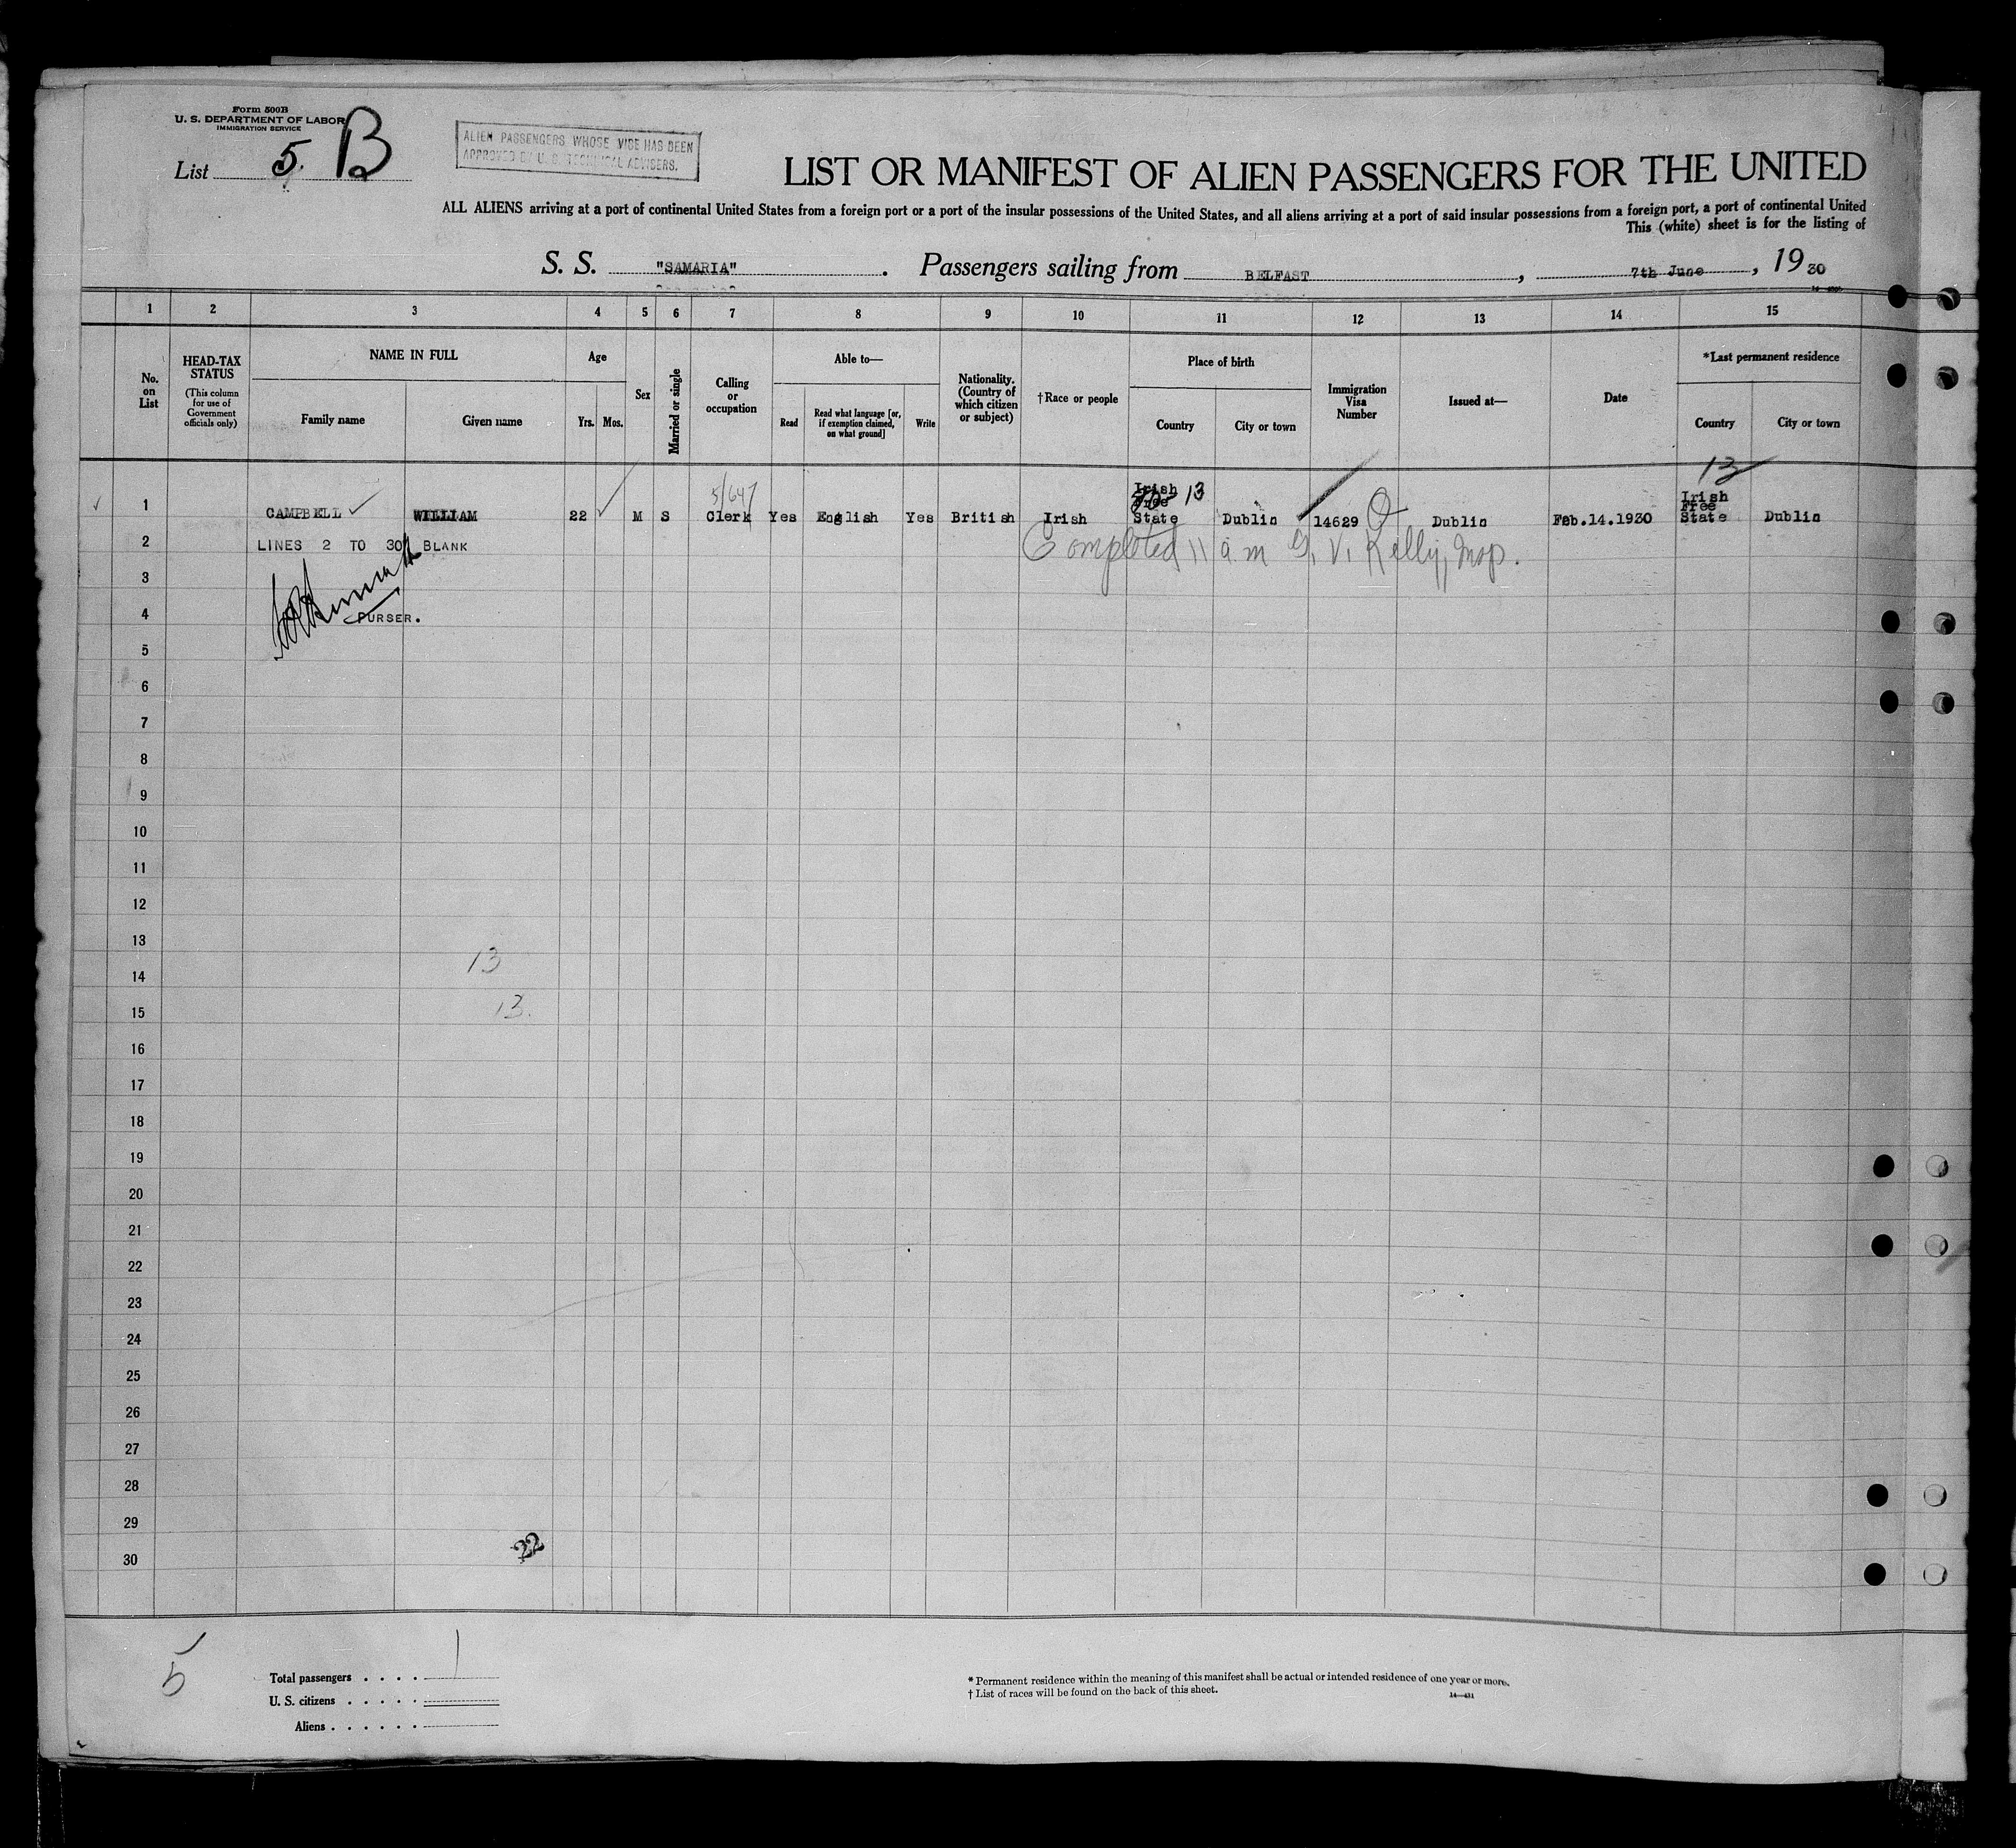 Form 500B
U. S. DEPARTMENT OF LABOR
IMMIGRATION SERVICE
List 5. B
ALIEN PASSENGERS WHOSE VISE HAS BEEN
APPROVED BY U. S. TECHNICAL ADVISERS.
LIST OR MANIFEST OF ALIEN PASSENGERS FOR THE UNITED
ALL ALIENS arriving at a port of continental United States from a foreign port or a port of the insular possessions of the United States, and all aliens arriving at a port of said insular possessions from a foreign port, a port of continental United
This (white) sheet is for the listing of
S. S. "SAMARIA". Passengers sailing from BELFAST, 7th June, 19 30
1 2 3 4 5 6 7 8 9 10 11 12 13 14 15
No. on List
HEAD-TAX STATUS
(This column for use of Government officials only)
NAME IN FULL
Family name
Given name
Age
Yrs. Mos.
Sex
Married or single
Calling or occupation
Able to—
Read
Read what language [or, if exemption claimed, on what ground]
Write
Nationality. (Country of which citizen or subject)
†Race or people
Place of birth
Country
City or town
Immigration Visa Number
Issued at—
Date
*Last permanent residence
Country
City or town
13
5/647
13
1 CAMPBELL WILLIAM 22 M S Clerk Yes English Yes British Irish Irish Free State Dublin 14629 Dublin Feb.14.1930 Irish Free State Dublin
2 LINES 2 TO 30 BLANK Completed 11 a.m. V. Kelly, Insp.
3
4 PURSER.
5
6
7
8
9
10
11
12
13
13
14
13.
15
16
17
18
19
20
21
22
23
24
25
26
27
28
29
22
30
5
Total passengers . . . . 1
U. S. citizens . . . . .
Aliens . . . . . .
* Permanent residence within the meaning of this manifest shall be actual or intended residence of one year or more.
† List of races will be found on the back of this sheet.
14—431